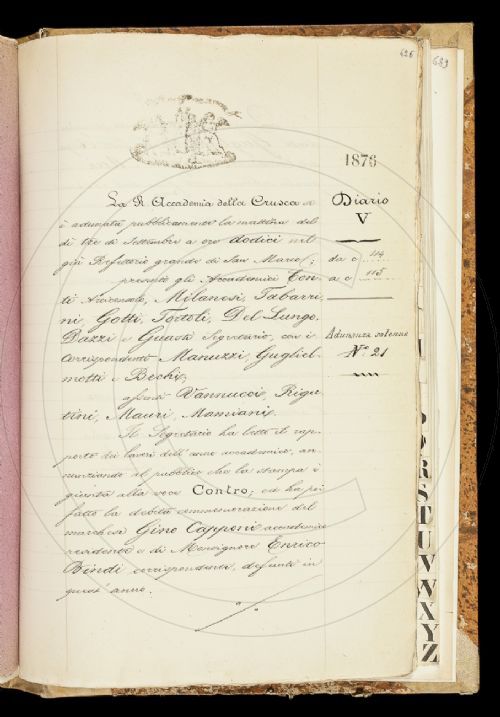 626
689
1876
La R. Accademia della Crusca si
è adunata pubblicamente la mattina del
dì tre di Settembre a ore dodici nel
già Refettorio grande di San Marco;
presenti gli Accademici Con-
ti Arciconsolo, Milanesi, Tabarri-
ni, Gotti, Tortoli, Del-Lungo,
Dazzi e Guasti Segretario, con i
Corrispondenti Manuzzi, Gugliel-
motti e Bechi,
assenti Vannucci, Rigu-
tini, Mauri, Mamiani.
Il Segretario ha letto il rap-
porto dei lavori dell'anno accademico, an-
nunziando al pubblico che la stampa è
giunta alla voce Contro, ed ha poi
fatto la debita commemorazione del
marchese Gino Capponi accademico
residente e di Monsignore Enrico
Bindi corrispondente, defunti in
quest'anno.
Diario
V
da c. 114
a c. 115
Adunanza solenne
N.º 21
P
Q
R
S
T
U
V
W
X
Y
Z